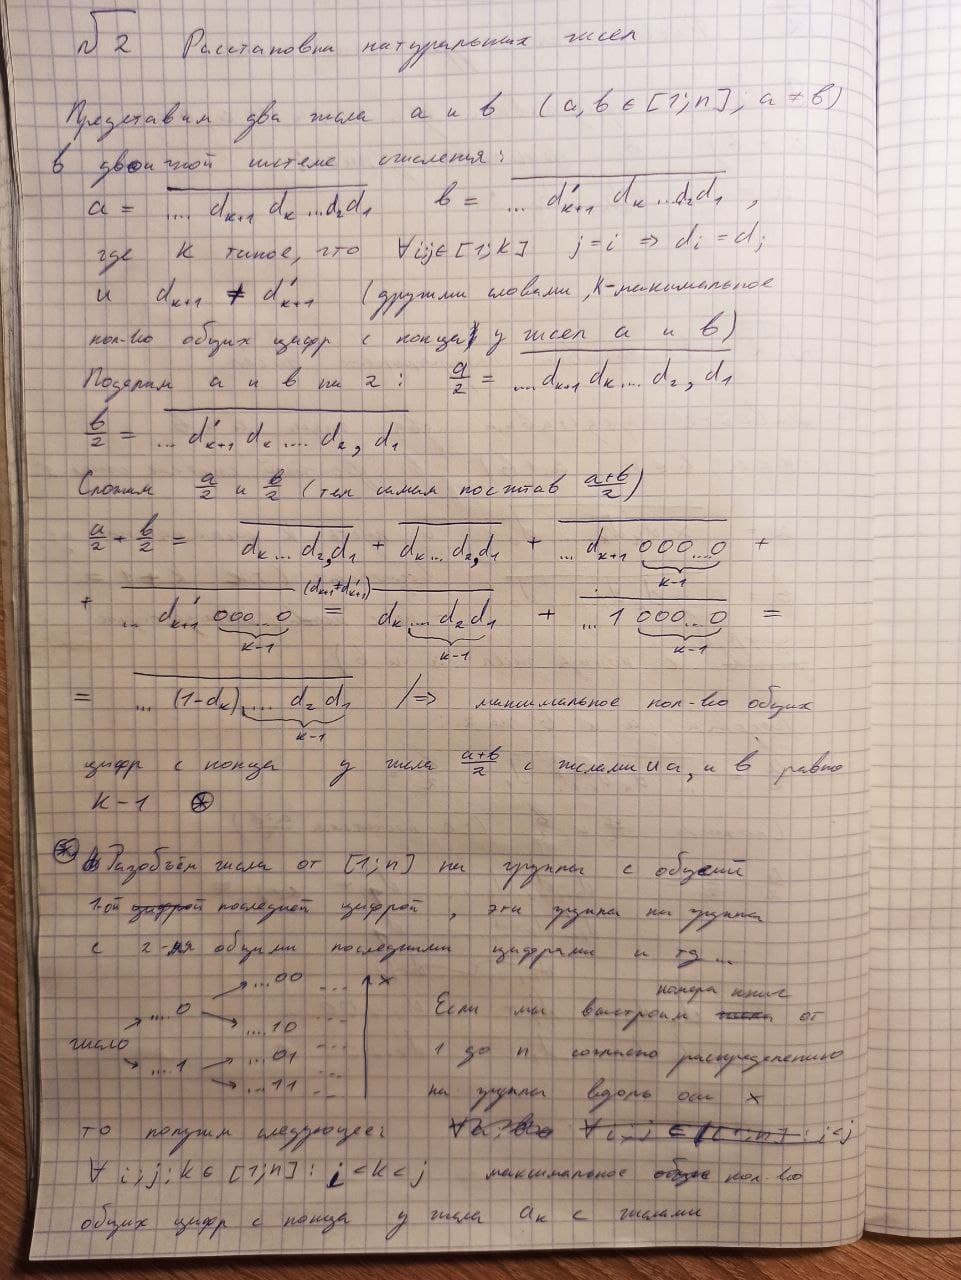 √2 Расстановки натуральных чисел
Представим два числа a и b (a, b ∈ [1; n]; a ≠ b)
в двоичной системе счисления:
a = .... dₖ₊₁ dₖ ... d₂ d₁ b = ... d'ₖ₊₁ dₖ ... d₂ d₁ ,
где K такое, что ∀ i,j ∈ [1; K] j = i ⇒ dᵢ = dⱼ
и dₖ₊₁ ≠ d'ₖ₊₁ (другими словами, K-максимальное
кол-во общих цифр с конца у чисел a и b)
Поделим a и b на 2: a/2 = ... dₖ₊₁ dₖ ... d₂, d₁
b/2 = ... d'ₖ₊₁ dₖ .... d₂, d₁
Сложим a/2 и b/2 (тем самым (a+b)/2)
a/2 + b/2 = dₖ ... d₂, d₁ + dₖ ... d₂, d₁ + ... dₖ₊₁ 000...0 +
k-1
+ ... d'ₖ₊₁ 000...0 (dₖ₊₁ ≠ d'ₖ₊₁) = dₖ .... d₂ d₁ + ... 1 000...0 =
k-1 k-1 k-1
= ... (1-dₖ) .... d₂ d₁ /⇒ максимальное кол-во общих
k-1
цифр с конца у числа (a+b)/2 с числами a, и b равно
K-1 ⊛
⊛ Разобъём числа от [1; n] на группы с общей
1-ой последней цифрой, эти группы на группы
с 2-мя общими последними цифрами и тд...
...00 --- x номера
....0 Если мы выстроим от
...10 ---
число 1 до n согласно распределению
....1 ...01 ---
...11 --- на группы вдоль оси x
то получим следующее: ∀ i; j ∈ [1; n] : i < j
∀ i; j; k ∈ [1; n] : i < k < j максимальное кол-во
общих цифр с конца у числа aₖ с числами